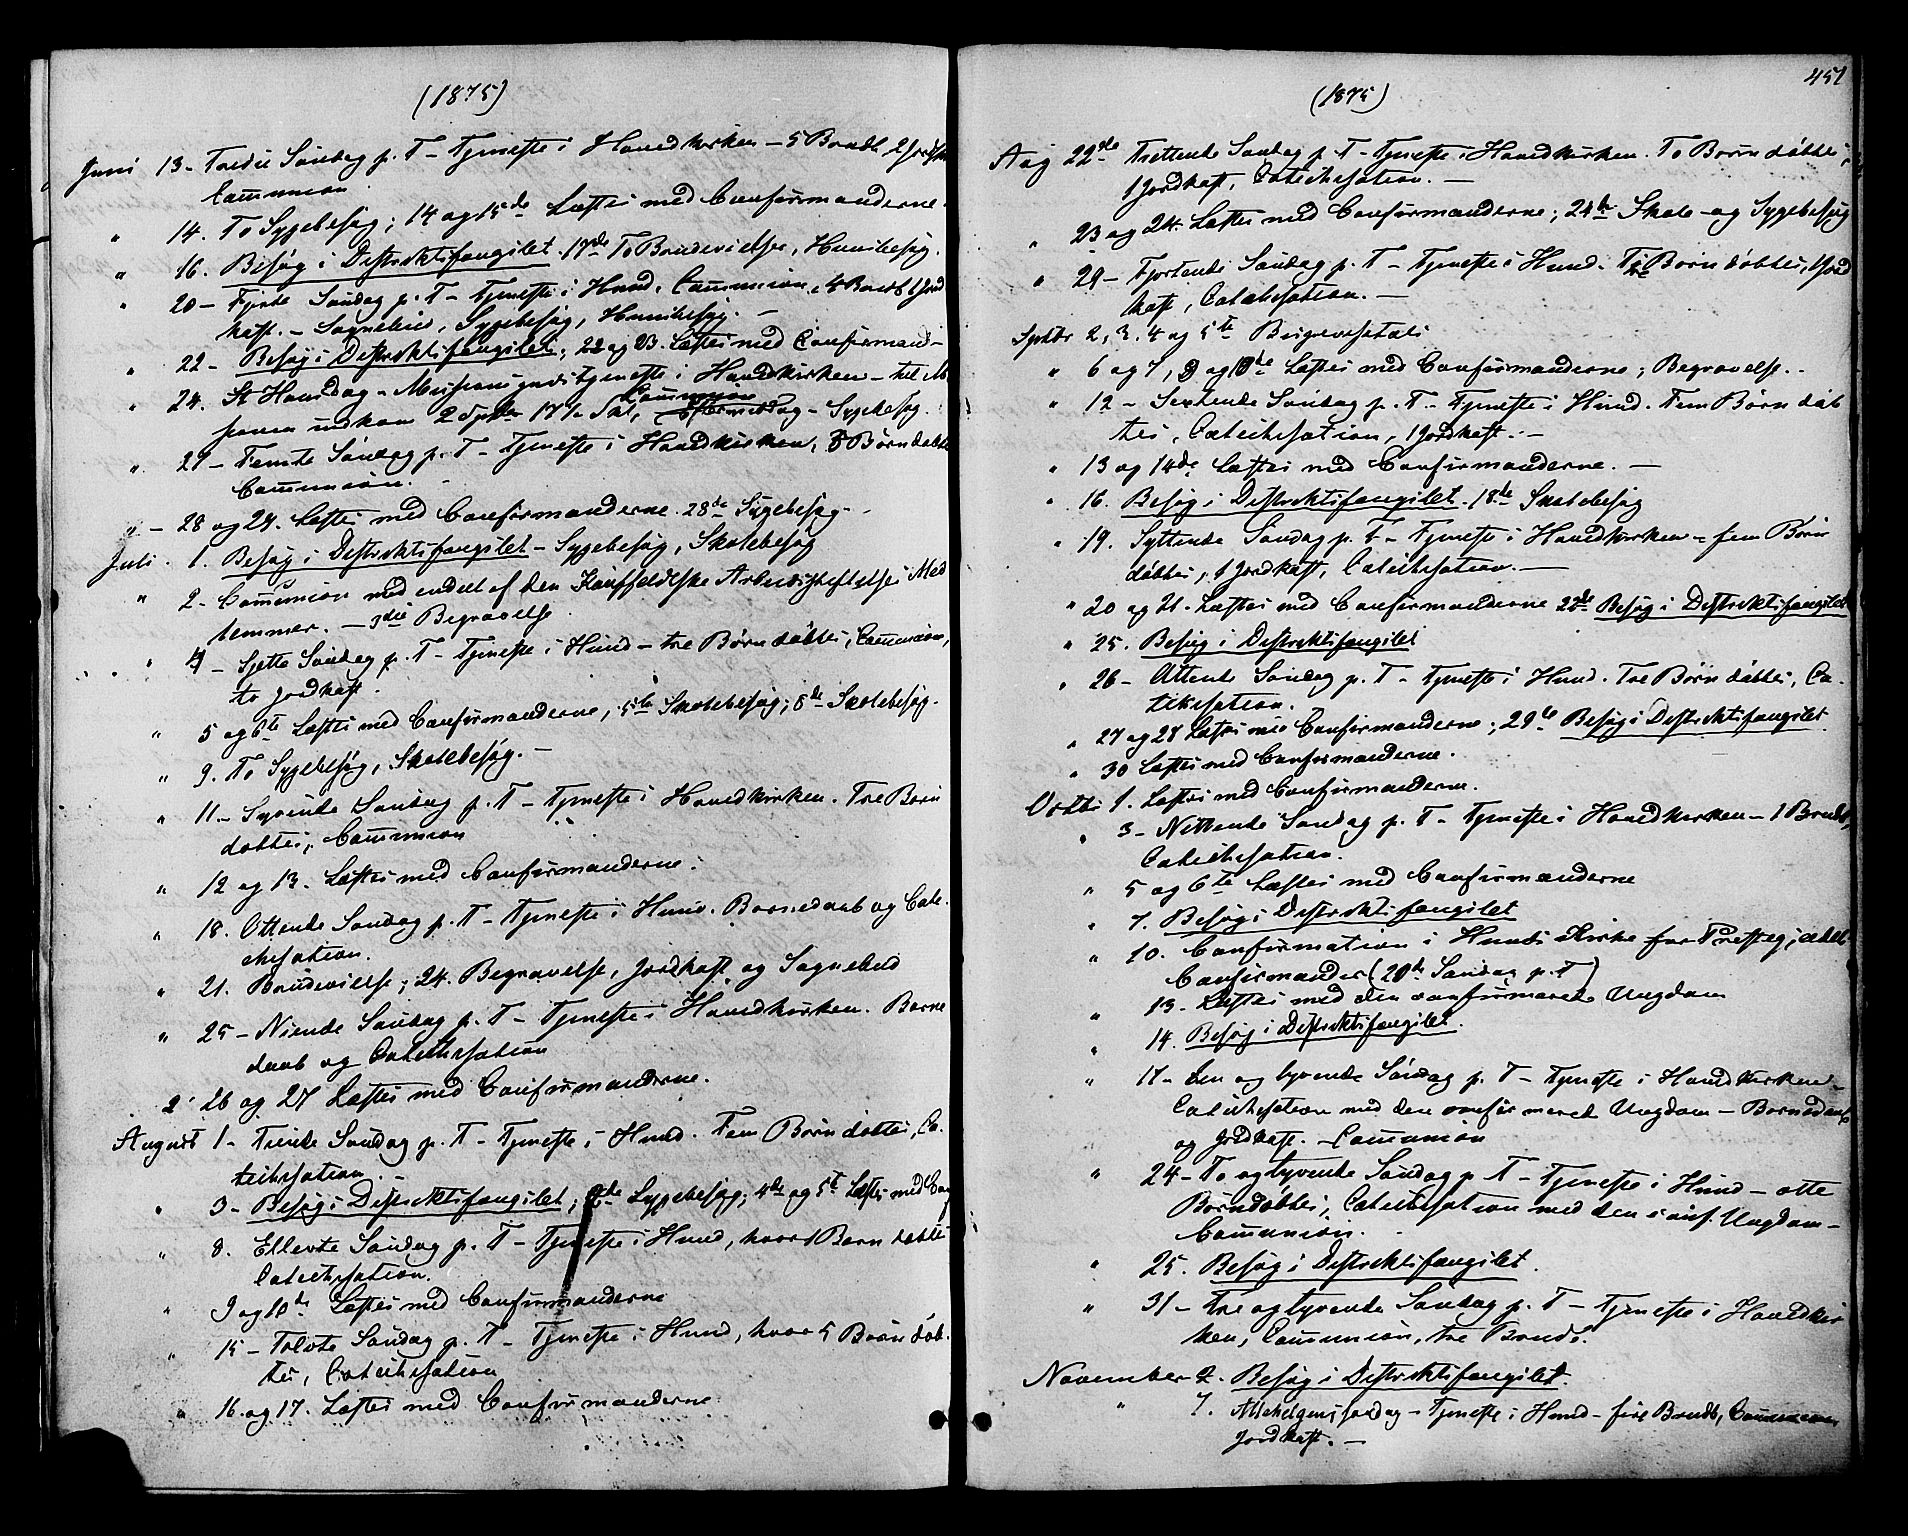 (1875)
Juni 13 - Tredie Søndag p. T - Tjeneste i Hovedkirken - 5 Barnd. 2 Jordf
Communion
" 14. To Sygebesøg; 14 og 15de Læstes med Confirmanderne.
" 16. Besøg i Destriktsfængslet. 17de To Brudevielser, Huusbesøg.
" 20 - Fjerde Søndag p. T - Tjeneste i Hund. Communion. 4 Barnd. 1 Jord
kast. - Sognebud, Sygebesøg, Huusbesøg. -
" 22 - Besøg i Destriktsfængslet; 22 og 23. Læstes med Confirmand-
" 24. St Hansdag - Missionsgudstjeneste i Hovedkirken - til Mi
Communion
sionen indkom 2 Spd 17 Sk, Eftermiddag - Sygebesøg.
" 27 - Femte Søndag p. T - Tjeneste i Hovedkirken, 3 Børn døbte
Communion. -
" - 28 og 29. Læstes med Confirmanderne. 28de Sygebesøg. -
Juli. 1. Besøg i Destriktsfængslet - Sygebesøg, Skolebesøg
" 2 - Communion med endel af den Kauffeldtske Arbeidsstiftelses Med
lemmer. - 3die Begravelse
" 4 - Sjette Søndag p. T - Tjeneste i Hund - tre Børn døbtes, Communion,
to Jordkast.
" 5 og 6te Læstes med Confirmanderne, 5te Skolebesøg; 8de Skolebesøg.
" 9. To Sygebesøg, Skolebesøg. -
" 11 - Syvende Søndag p. T - Tjeneste i Hovedkirken. Tre Børn
døbtes, Communion
" 12 og 13. Læstes med Confirmanderne.
" 18. Ottende Søndag p. T - Tjeneste i Hund. Barnedaab og Cate-
chisation.
" 21. Brudevielse; 24. Begravelse, Jordkast og Sognebud
" 25 - Niende Søndag p. T - Tjeneste i Hovedkirken. Barne
daab og Catechisation
" 26 og 27 Læstes med Confirmanderne.
August 1 - Tiende Søndag p. T - Tjeneste i Hund. Fem Børn døbtes, Ca-
techisation. -
" 3 - Besøg i Destriktsfængslet; Sygebesøg; 4de og 5te Læstes med Con
" 8. Ellevte Søndag p. T - Tjeneste i Hund, hvor 1 Barn døbtes
Catechisation.
" 9 og 10de Læstes med Confirmanderne
" 15 - Tolvte Søndag p. T - Tjeneste i Hund, hvor 5 Børn døb-
tes, Catechisation
" 16. og 17. Læstes med Confirmanderne
451
(1875)
Aug 22de Trettende Søndag p. T - Tjeneste i Hovedkirken. To Børn døbtes,
1 Jordkast, Catechisation. -
" 23 og 24. Læstes med Confirmanderne; 24de Skole- og Sygebesøg
" 29 - Fjortende Søndag p. T - Tjeneste i Hund. To Børn døbtes, 1 Jord
kast, Catechisation. -
Septbr 2, 3. 4 og 5te Bispevisitats
" 6 og 7, 9 og 10de Læstes med Confirmanderne; Begravelse. -
" 12 - Sextende Søndag p. T - Tjeneste i Hund. Fem Børn døb
tes, Catechisation, 1 Jordkast. -
" 13 og 14de Læstes med Confirmanderne. -
" 16. Besøg i Destriktsfængslet. 18de Skolebesøg
" 19. Syttende Søndag p. T - Tjeneste i Hovedkirken - fem Børn
døbtes, 1 Jordkast, Catechisation. -
" 20 og 21. Læstes med Confirmanderne 22de Besøg i Destriktsfængslet
" 25. Besøg i Destriktsfængslet
" 26 - Attende Søndag p. T - Tjeneste i Hund. Tre Børn døbtes, Ca-
tekisation.
" 27 og 28 Læstes med Confirmanderne; 29de Besøg i Destriktsfængslet
" 30 Læstes med Confirmanderne.
Octbr 1. Læstes med Confirmanderne.
" 3 - Nittende Søndag p. T - Tjeneste i Hovedkirken - 1 Barnd.,
Catechisation.
" 5 og 6te Læstes med Confirmanderne
" 7. Besøg i Destriktsfængslet
" 10. Confirmation i Hunds Kirke for Præstegjældets
Confirmander (20de Søndag p. T)
" 13 - Læstes med den confirmerede Ungdom
" 14. Besøg i Destriktsfængslet.
" 17 - Een og tyvende Søndag p. T - Tjeneste i Hovedkirken -
Catechisation med den confirmerede Ungdom - Barnedaab
og Jordkast. - Communion
" 24 - To og tyvende Søndag p. T - Tjeneste i Hund - otte
Børn døbtes, Catechisation med den conf. Ungdom -
Communion. -
" 25. Besøg i Destriktsfængslet.
" 31 - Tre og tyvende Søndag p. T - Tjeneste i Hovedkir
ken, Communion, tre Barnd.
November 2. Besøg i Destriktsfængslet.
" 7. Allehelgensdag - Tjeneste i Hund - fire Barnd., Communion
Jordkast. -